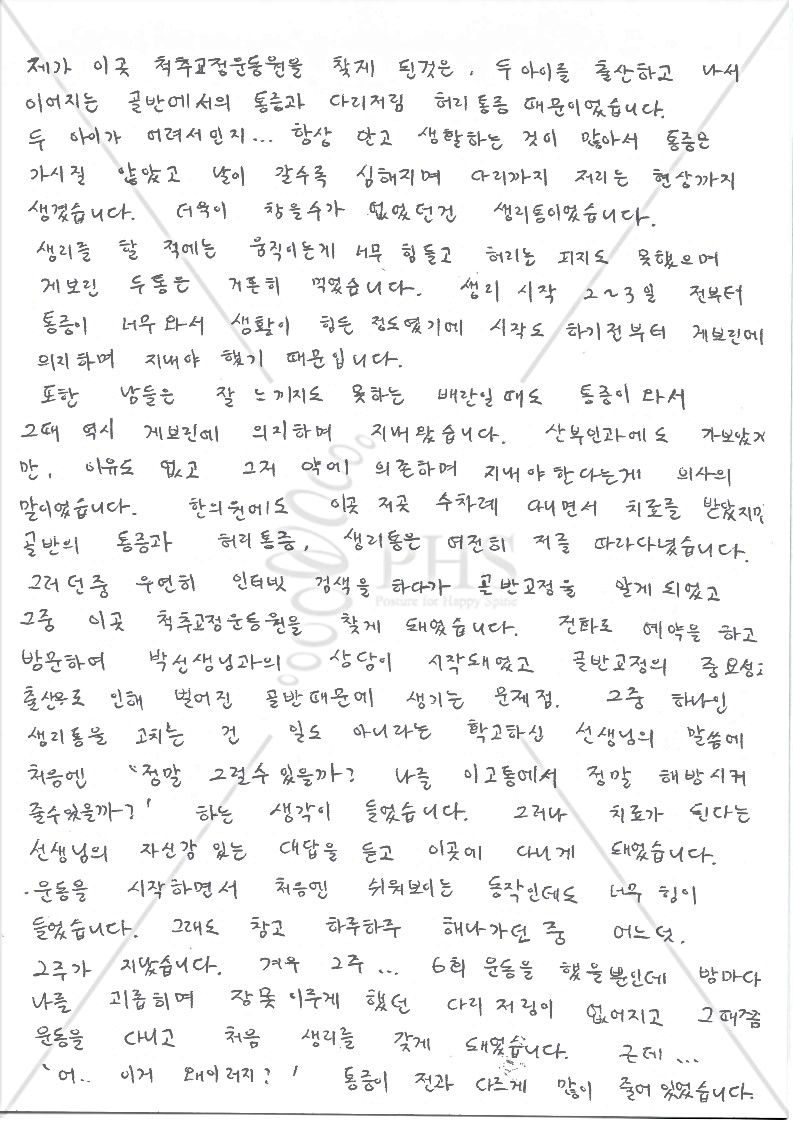 제가 이곳 척추교정운동원을 찾게 된것은, 두 아이를 출산하고 나서
이어지는 골반에서의 통증과 다리저림 허리통증 때문이었습니다.
두 아이가 어려서인지... 항상 안고 생활하는 것이 많아서 통증은
가시질 않았고 날이 갈수록 심해지며 다리까지 저리는 현상까지
생겼습니다. 더욱이 참을수가 없었던건 생리통이었습니다.
생리를 할 적에는 움직이는게 너무 힘들고 허리는 피지도 못했으며
게보린 두통은 거뜬히 먹었습니다. 생리 시작 2~3일 전부터
통증이 너무 와서 생활이 힘든 정도였기에 시작도 하기전부터 게보린에
의지하며 지내야 했기 때문입니다.
또한 남들은 잘 느끼지도 못하는 배란일 때도 통증이 와서
그때 역시 게보린에 의지하며 지내왔습니다. 산부인과에도 가보았지
만, 이유도 없고 그저 약에 의존하며 지내야한다는게 의사의
말이었습니다. 한의원에도 이곳 저곳 수차례 다니면서 치료를 받았지만
골반의 통증과 허리통증, 생리통은 여전히 저를 따라다녔습니다.
그러던중 우연히 인터넷 검색을 하다가 골반교정을 알게 되었고
그중 이곳 척추교정운동원을 찾게 돼었습니다. 전화로 예약을 하고
방문하여 박선생님과의 상담이 시작돼었고 골반교정의 중요성과
출산으로 인해 벌어진 골반때문에 생기는 문제점. 그중 하나인
생리통을 고치는 건 일도 아니라는 확고하신 선생님의 말씀에
처음엔 "정말 그럴수 있을까? 나를 이고통에서 정말 해방시켜
줄수있을까?' 하는 생각이 들었습니다. 그러나 치료가 된다는
선생님의 자신감 있는 대답을 듣고 이곳에 다니게 돼었습니다.
.운동을 시작하면서 처음엔 쉬워보이는 동작인데도 너무 힘이
들었습니다. 그래도 참고 하루하루 해나가던 중 어느덧,
2주가 지났습니다. 겨우 2주... 6회 운동을 했을뿐인데 밤마다
나를 괴롭히며 잠못이루게 했던 다리 저림이 없어지고 그때쯤
운동을 다니고 처음 생리를 갖게 돼었습니다. 근데...
'어.. 이거 왜이러지?' 통증이 전과 다르게 많이 줄어 있었습니다.
PHS
Posture for Happy Spine